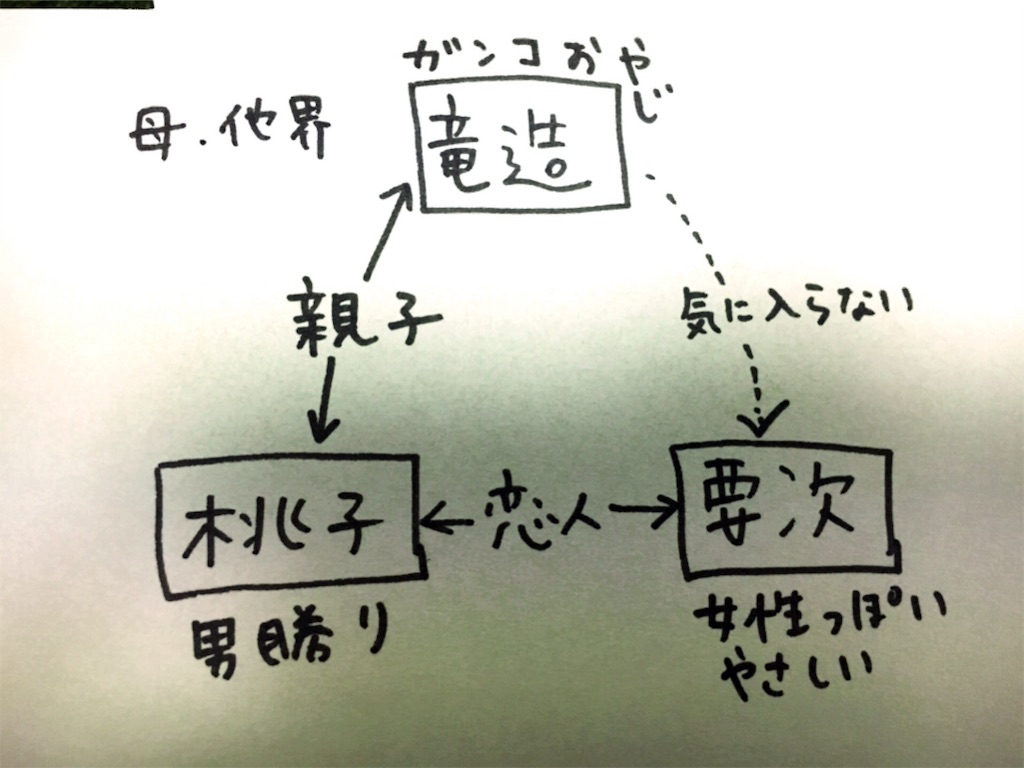 ガンコおやじ
母.他界
竜造
親子
気に入らない
桃子
恋人
要次
男勝り
女性っぽい
やさしい